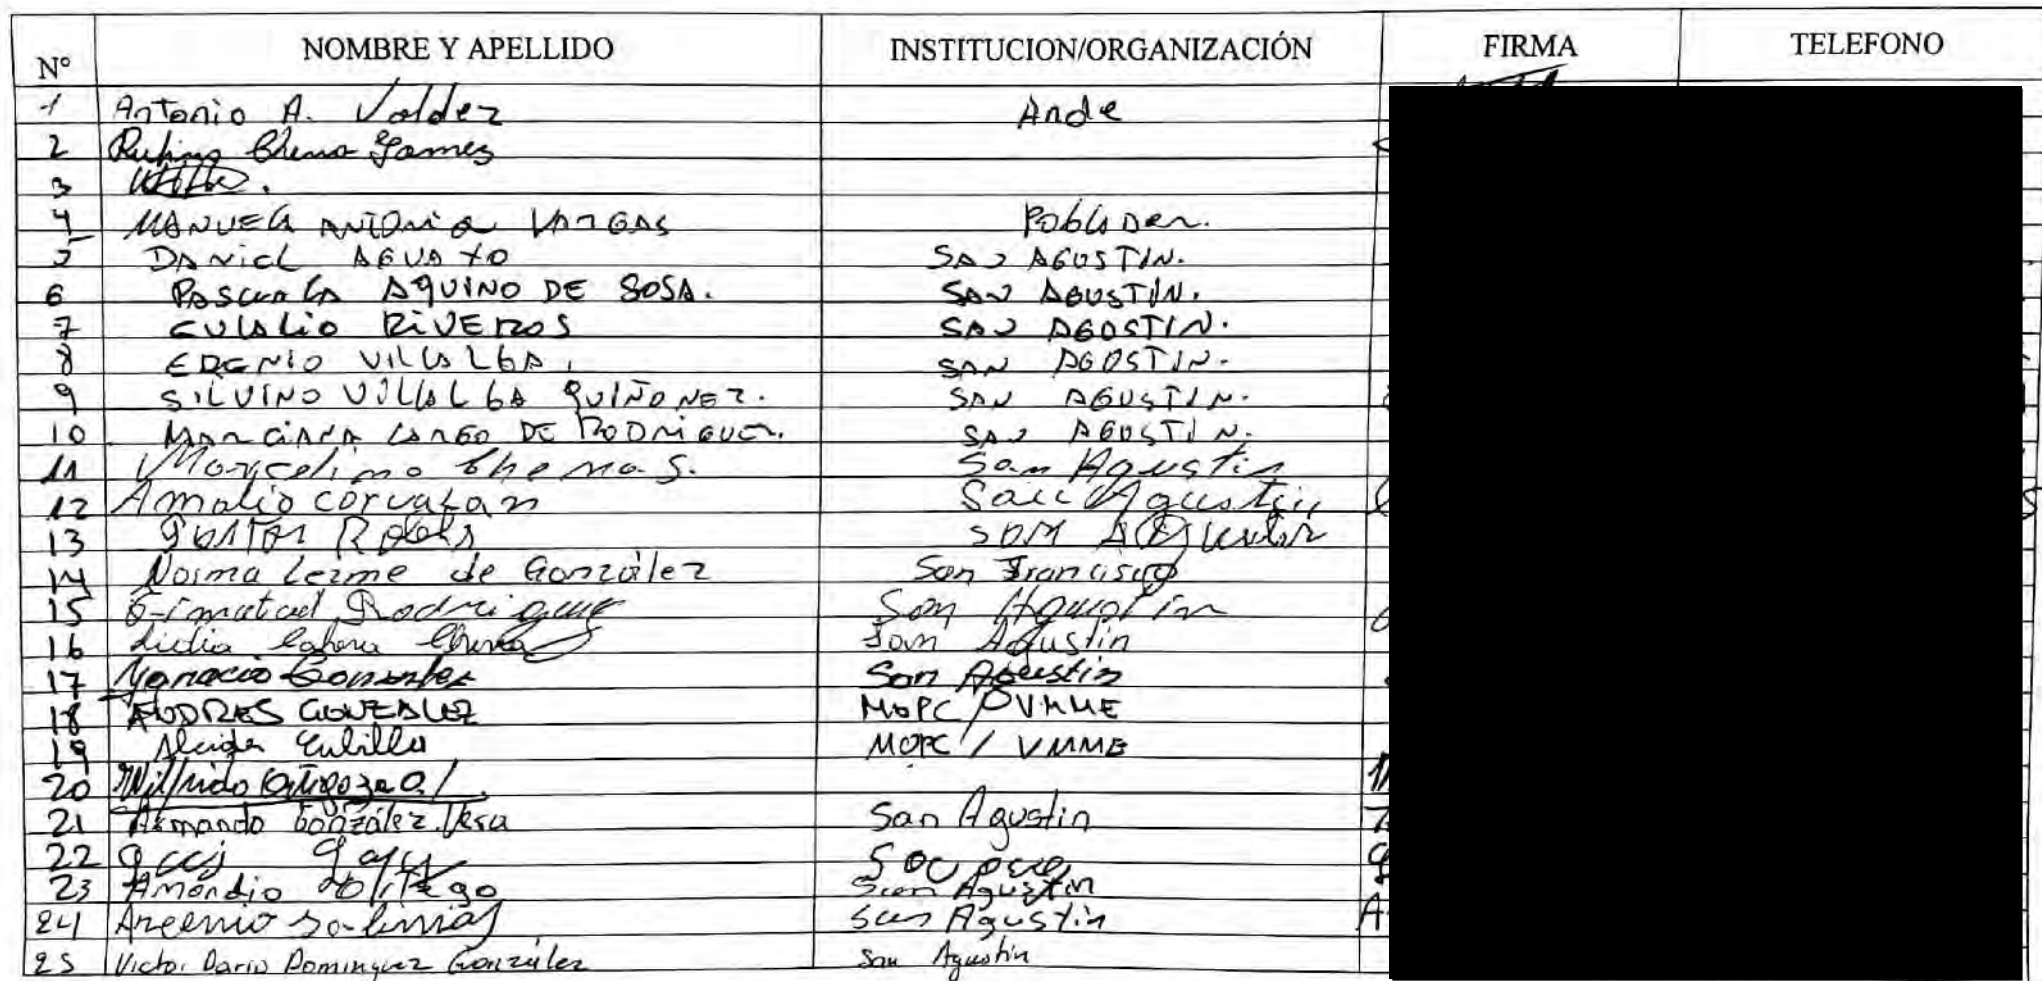 Nº NOMBRE Y APELLIDO INSTITUCION/ORGANIZACIÓN FIRMA TELEFONO
1 Antonio A. Valdez Ande
2 Rufino Chena Gamez
3
4 MANUELA ANTONIA VARGAS Poblador.
5 DANIEL AGUAYO SAN AGUSTIN.
6 PASCUALA AQUINO DE SOSA. SAN AGUSTIN.
7 EULALIO RIVEROS SAN AGUSTIN.
8 EDENIO VILLALBA, SAN AGUSTIN.
9 SILVINO VILLALBA QUIÑONEZ. SAN AGUSTIN.
10 MARCIANA CARGO DE RODRIGUEZ. SAN AGUSTIN.
11 Marycelino Chena S. San Agustin
12 Amalio corvalan San Agustin
13 Pastor San
14 Norma Lezme de González San Francisco
15 Rodrigue San Agustin
16 Lidia Cabera Chena San Agustin
17 Ygnacio Gonzalez San Agustin
18 ANDRES GONZALEZ MOPC/VMME
19 Alcides Cubilla MOPC / VMME
20 Wilfrido Ortigoza O.
21 Armando González Vera San Agustin
22
23 Amancio Ortego San Agustin
24 Arcenio Salinas San Agustin
25 Victor Dario Dominguez González San Agustin